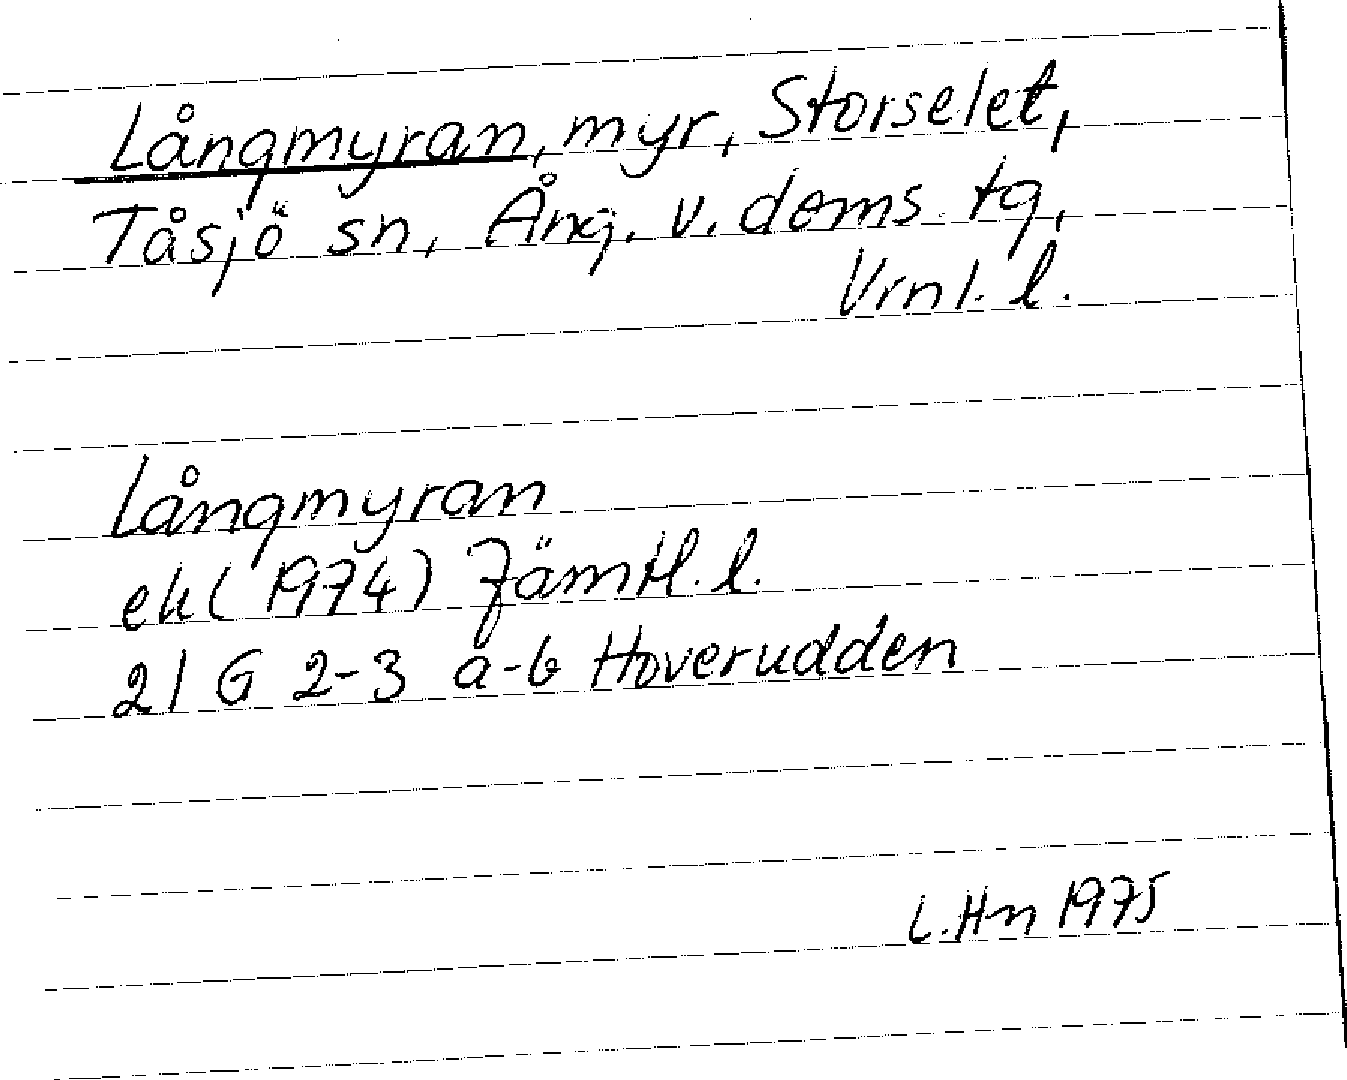 Långmyran, myr, Storselet,
Tåsjö sn, Ång. v. doms. tg,
Vrnl. l.
Långmyran
ek (1974) Jämtl. l.
21 G 2-3 a-b Hoverudden
L. Hn 1975